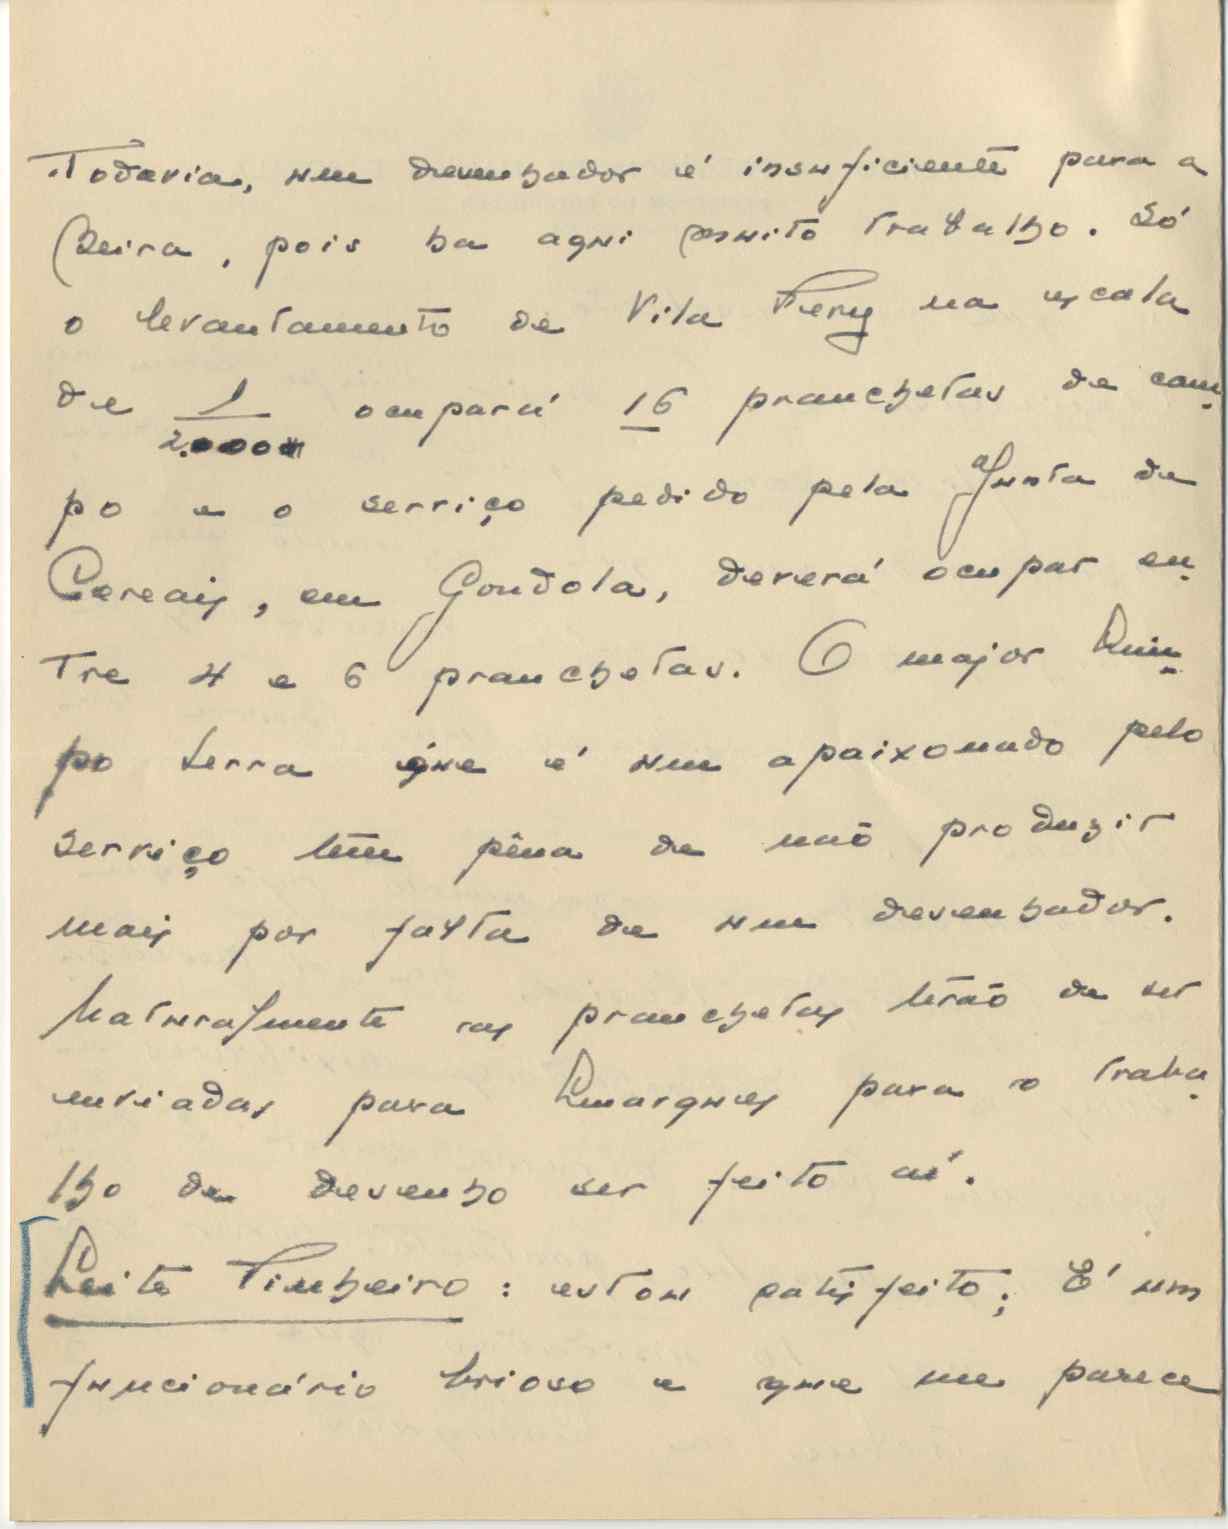 Todavia, um desenhador é insuficiente para a
Beira, pois ha aqui muito trabalho. Só
o levantamento de Vila Pery na escala
de 1/2.000 ocupará 16 pranchetas de cam-
po e o serviço pedido pela Junta de
Cereais, em Gondola, deverá ocupar en-
tre 4 e 6 pranchetas. O major Lim-
po Serra que é um apaixonado pelo
serviço tem pêna de não produzir
mais por falta de um desenhador.
Naturalmente as pranchetas terão de ser
enviadas para Lmarques para o traba-
lho de desenho ser feito aí.
Leite Pinheiro: estou satisfeito; É um
funcionário brioso e que me parece